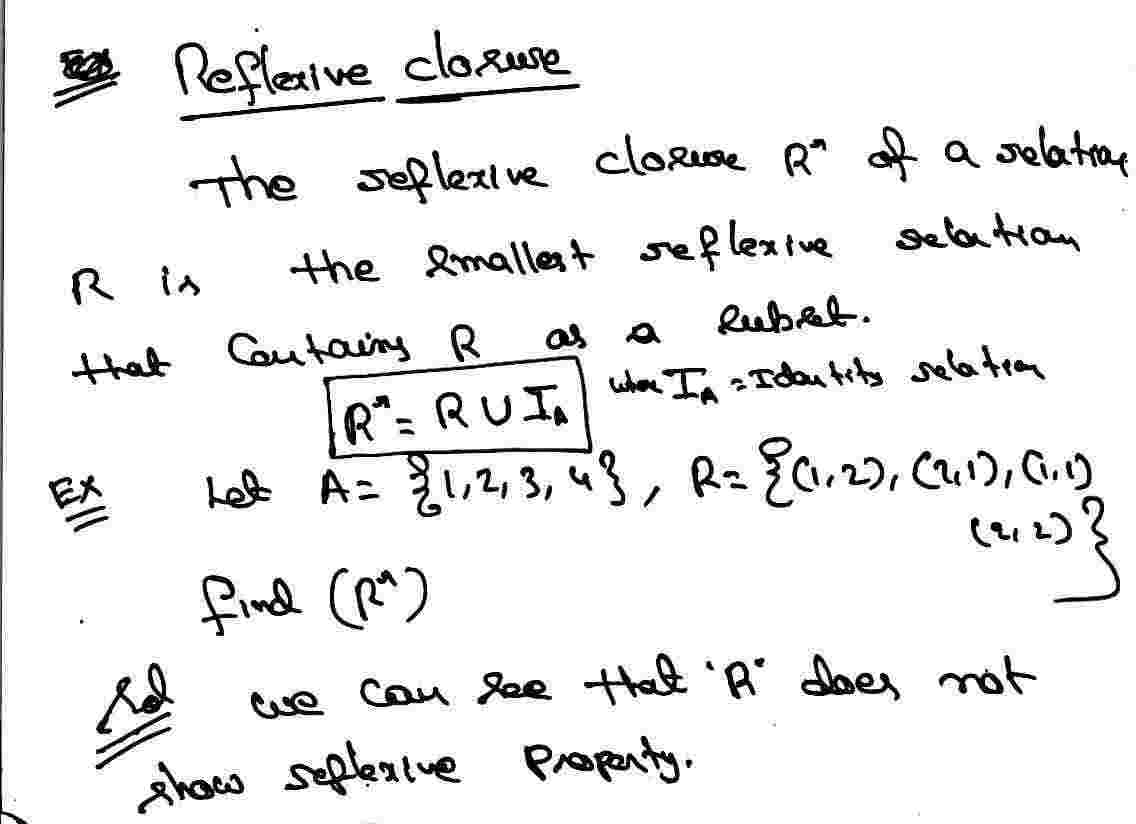 Reflexive closure
The reflexive closure Rʳ of a relation
R is the smallest reflexive relation
that Contains R as a subset.
Rʳ = R ∪ I_A where I_A = Identity relation
Ex Let A = {1, 2, 3, 4}, R = {(1, 2), (2, 1), (1, 1)
(2, 2)}
find (Rʳ)
Sol we can see that 'R' does not
show reflexive Property.